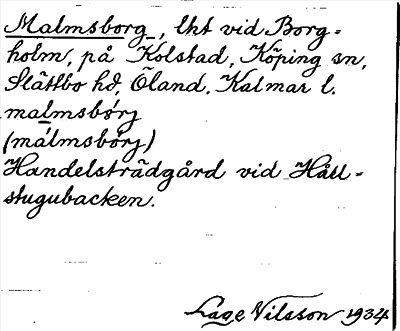 Malmsborg, lht vid Borg=
holm, på Kolstad, Köping sn,
Slättbo hd, Öland. Kalmar l.
malmsbórj
(málmsbórj)
Handelsträdgård vid Håll=
stugubacken.
Lage Nilsson 1934